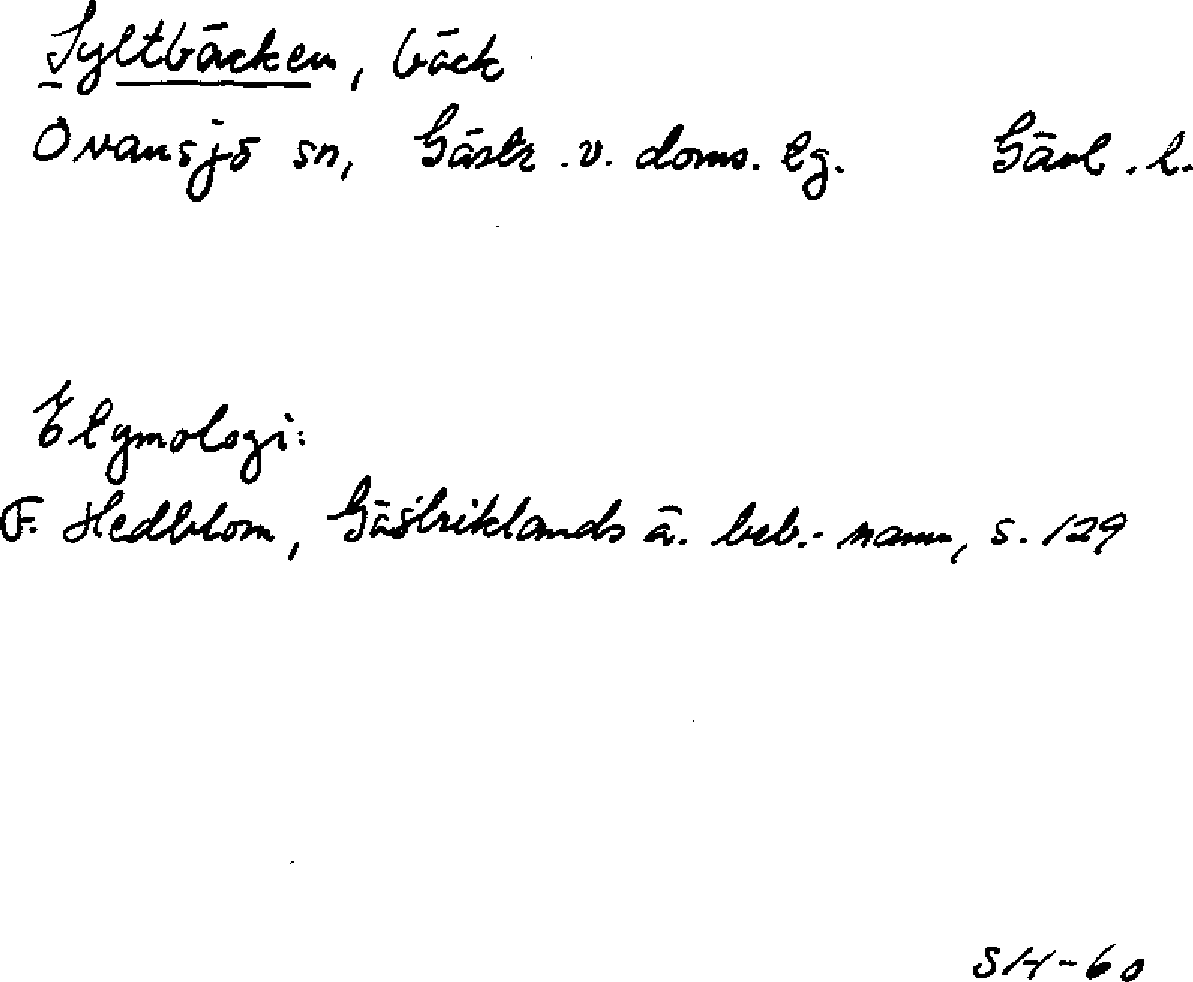 Syltbäcken, bäck
Ovansjö sn, Gästr. v. doms. lg. Gävl. l.
Etymologi:
F. Hedblom, Gästriklands ä. beb.-namn, s. 129
SH-60